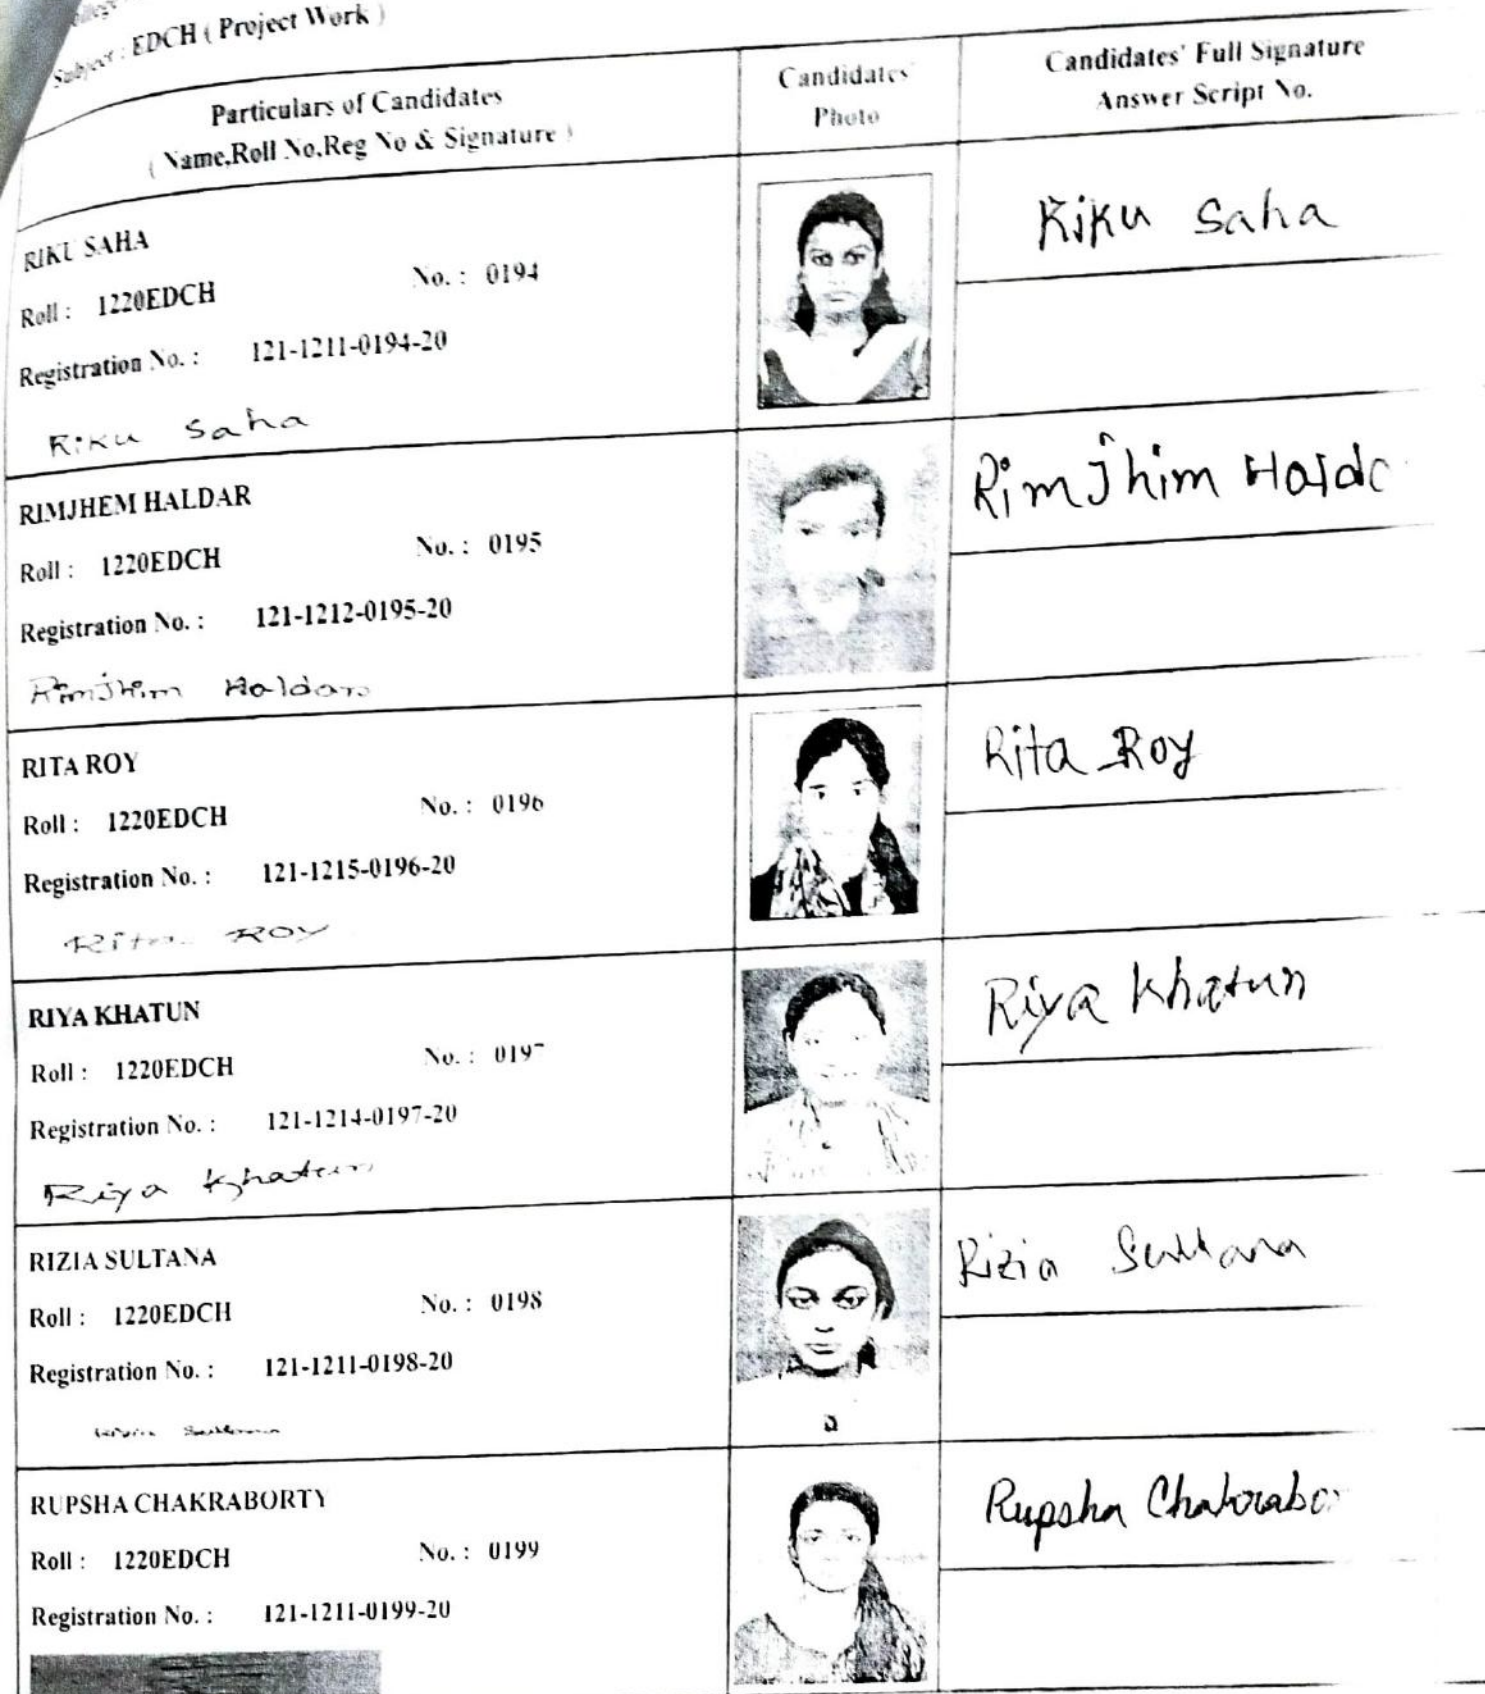 Subject : EDCH ( Project Work )
Particulars of Candidates
( Name,Roll No,Reg No & Signature )
Candidates'
Photo
Candidates' Full Signature
Answer Script No.
RIKU SAHA
Roll : 1220EDCH No. : 0194
Registration No. : 121-1211-0194-20
Riku Saha
Riku Saha
RIMJHEM HALDAR
Roll : 1220EDCH No. : 0195
Registration No. : 121-1212-0195-20
Rimjhim Haldar
Rimjhim Halda
RITA ROY
Roll : 1220EDCH No. : 0196
Registration No. : 121-1215-0196-20
Rita Roy
Rita Roy
RIYA KHATUN
Roll : 1220EDCH No. : 0197
Registration No. : 121-1214-0197-20
Riya Khatun
Riya Khatun
RIZIA SULTANA
Roll : 1220EDCH No. : 0198
Registration No. : 121-1211-0198-20
Rizia Sultana
Rizia Sultana
RUPSHA CHAKRABORTY
Roll : 1220EDCH No. : 0199
Registration No. : 121-1211-0199-20
Rupsha Chakrabor